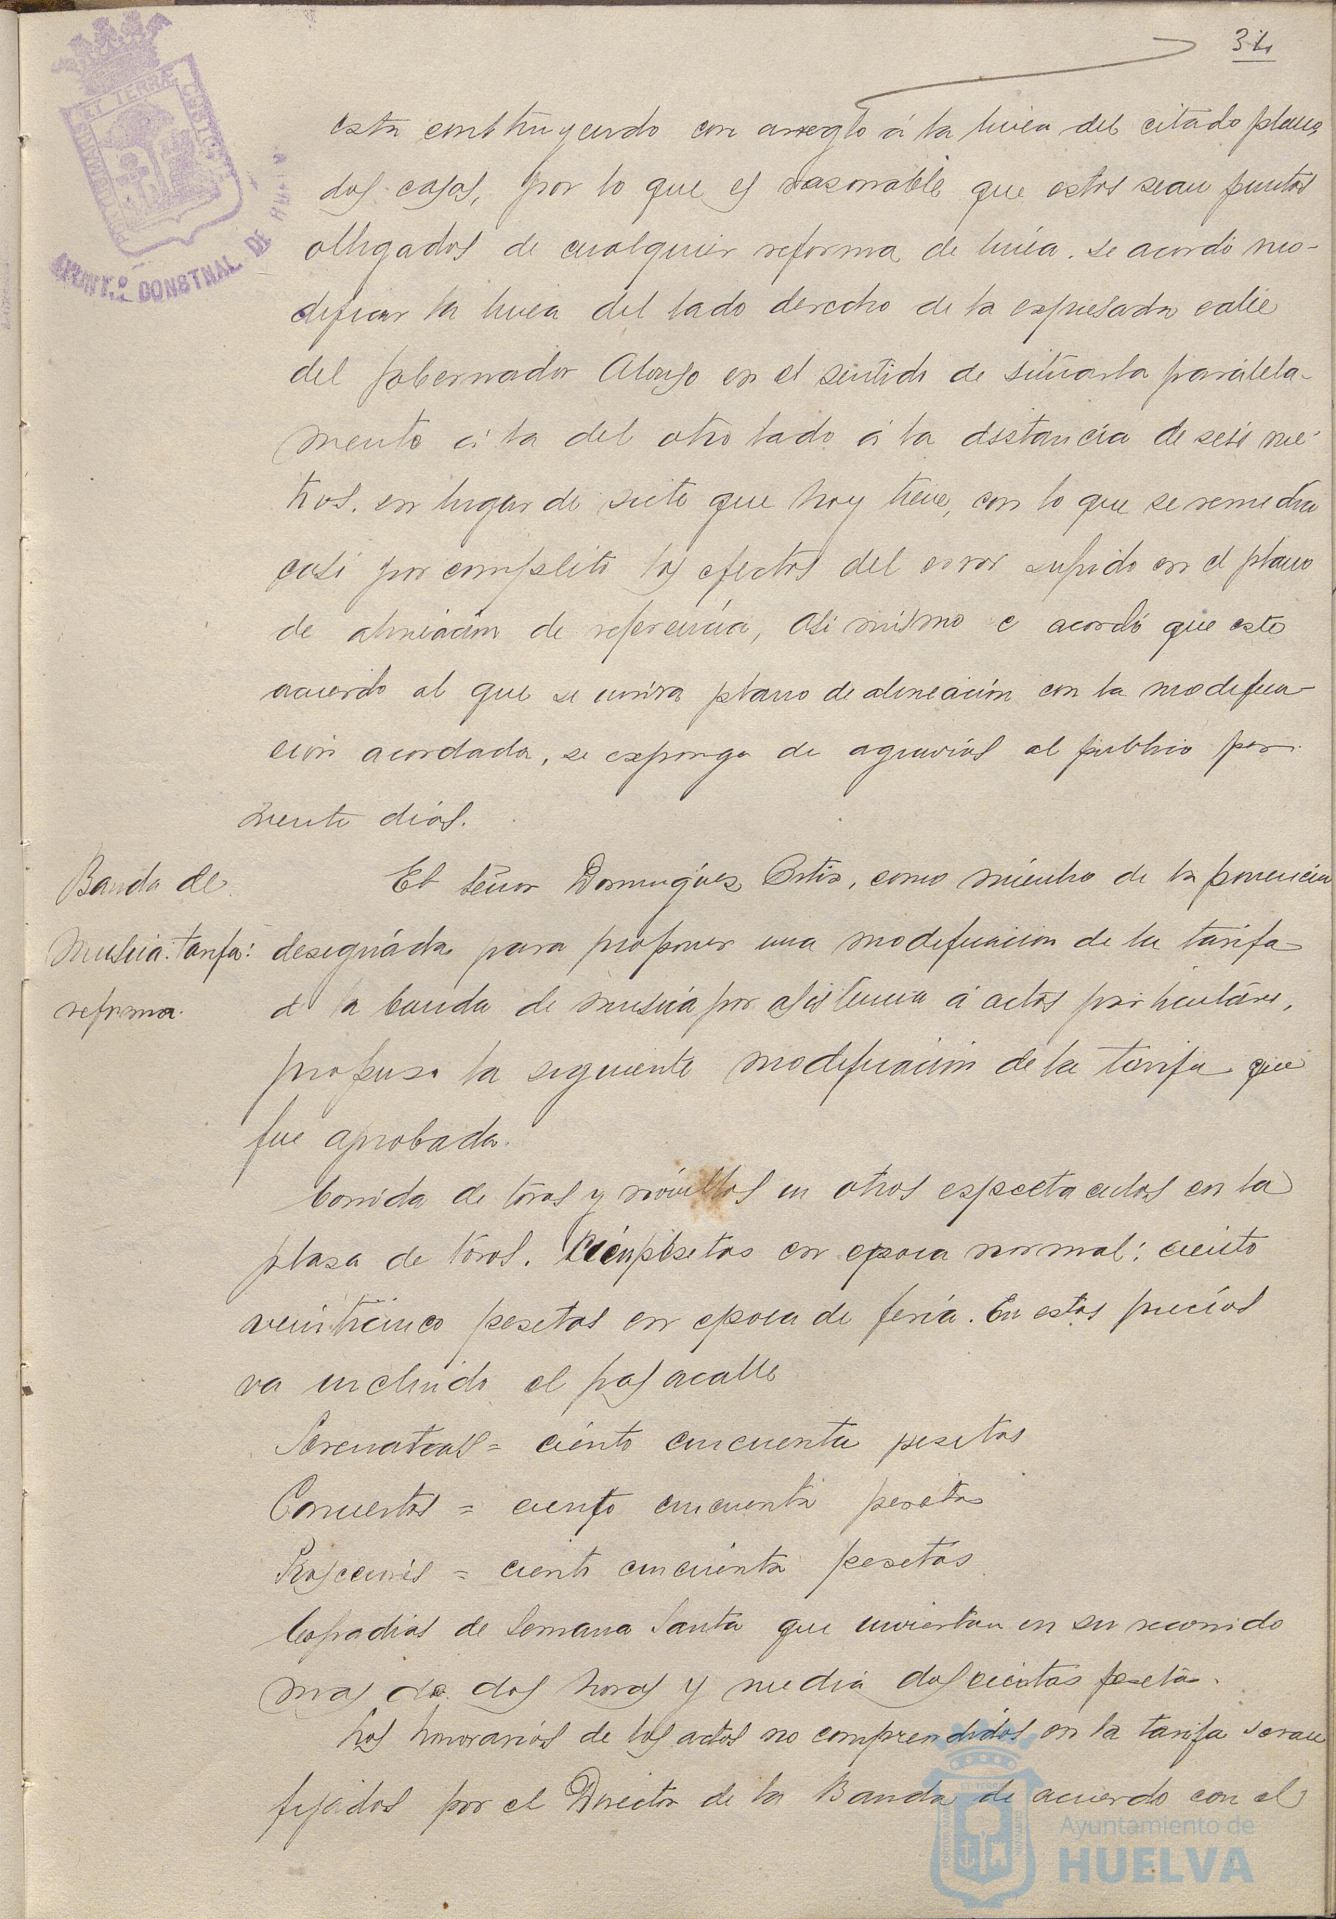 31
PORTUS MARIS ET TERRÆ CUSTODIA
AYUNT.º CONSTNAL DE HUELVA
esta construyendo con arreglo á la linea del citado plano
dos casas, por lo que es rasonable que estos sean puntos
obligados de cualquier reforma de linea. se acordó mo-
dificar la linea del lado derecho de la expresada calle
del Gobernador Alonso en el sentido de situarla paralela-
mente á la del otro lado á la distancia de seis me-
tros, en lugar de siete que hoy tiene, con lo que se remedia
casi por completo los efectos del error sufrido en el plano
de alineación de referencia, asi mismo se acordó que este
acuerdo al que se unira plano de alineación con la modifica-
ción acordada, se exponga de agravios al publico por
veinte dias.
Banda de
Musica: tarifa:
reforma.
El señor Dominguez Ortiz, como miembro de la ponencia
designada para proponer una modificacion de la tarifa
de la banda de musica por asistencia á actos particulares,
propuso la siguiente modificación de la tarifa que
fue aprobada.
Corrida de toros y novillos u otros espectaculos en la
plasa de toros. Cien pesetas en epoca normal: ciento
veinticinco pesetas en epoca de feria. En estos precios
va incluido el pasacalle
Serenatas = ciento cincuenta pesetas
Conciertos = ciento cincuenta pesetas
Procesiones = ciento cincuenta pesetas
Cofradias de Semana Santa que inviertan en su recorrido
mas de dos horas y media doscientas pesetas.
Los honorarios de los actos no comprendidos en la tarifa seran
fijados por el Director de la Banda de acuerdo con el
Ayuntamiento de
HUELVA